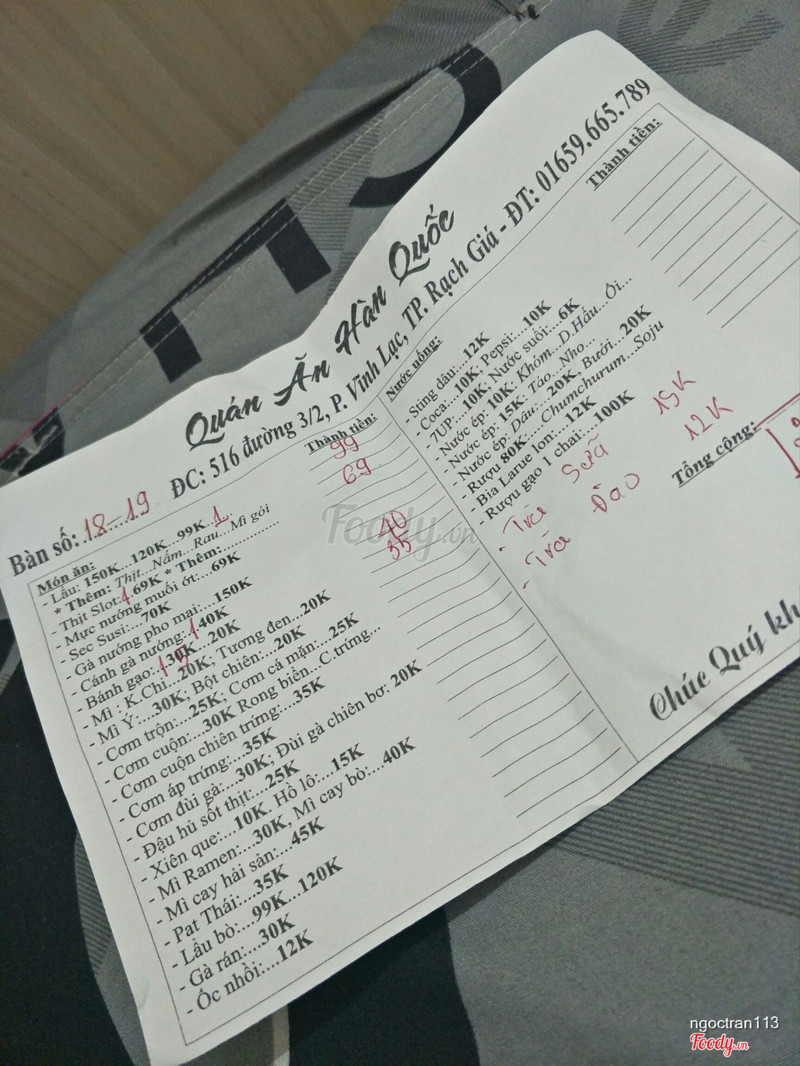 Quán Ăn Hàn Quốc
ĐC: 516 đường 3/2, P. Vĩnh Lạc, TP. Rạch Giá - ĐT: 01659.665.789
Bàn số: 18-19
Món ăn:
Thành tiền:
- Lẩu: 150K...120K...99K...1
99
* Thêm: Thịt...Nấm...Rau...Mì gói
- Thịt Slot: 1 69K * Thêm:............
69
- Mực nướng muối ớt:...69K
- Sec Susi:...70K
- Gà nướng pho mai:...150K
- Cánh gà nướng: 1 40K
40
- Bánh gạo: 1 30K...20K
35
- Mì : K.Chi...20K; Tương đen...20K
- Mì Ý:...30K; Bột chiên:...20K
- Cơm trộn:...25K; Cơm cá mặn:...25K
- Cơm cuộn:...30K Rong biển...C.trứng...
- Cơm cuộn chiên trứng:...35K
- Cơm áp trứng:...35K
- Cơm đùi gà:...30K; Đùi gà chiên bơ: 20K
- Đậu hủ sốt thịt:...25K
- Xiên que:...10K. Hồ lô:...15K
- Mì Ramen:...30K, Mì cay bò:...40K
- Mì cay hải sản:...45K
- Pat Thái:...35K
- Lẩu bò:...99K...120K
- Gà rán:...30K
- Ốc nhồi:...12K
Nước uống:
Thành tiền:
- Sting dâu:...12K
- Coca:...10K; Pepsi:...10K
- 7UP:...10K; Nước suối:...6K
- Nước ép: 10K: Khóm...D.Hấu...Ổi...
- Nước ép: 15K: Táo...Nho...
- Nước ép: Dâu...20K. Bưởi...20K
- Rượu 80K...Chumchurum...Soju
- Bia Larue lon:...12K
- Rượu gạo 1 chai:...100K
- Trà Sữa 15K
- Trà Đào 12K
Tổng cộng:
Chúc Quý kh
Foody.vn
ngoctran113
Foody.vn